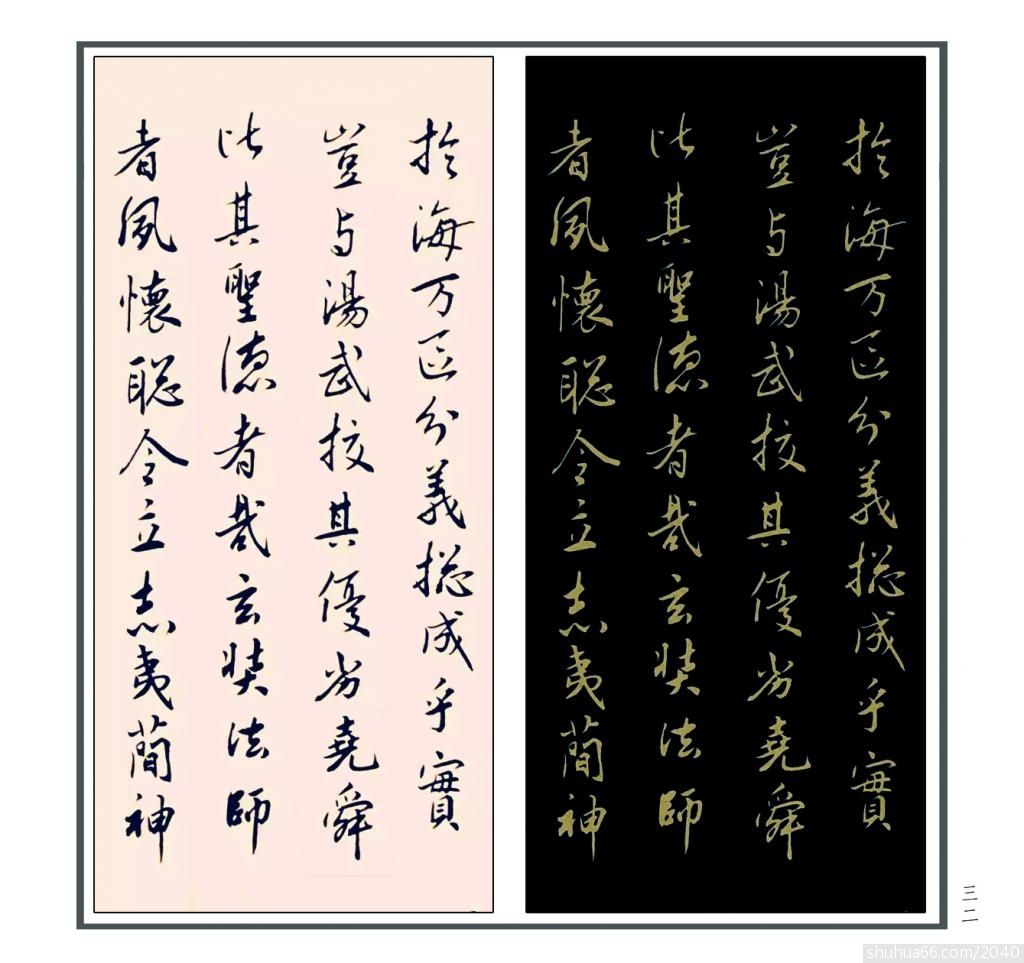 於海万區分義捴成乎實
豈与湯武挍其優劣堯舜
比其聖德者哉玄奘法師
者夙懷聡令立志夷蕳神
於海万區分義捴成乎實
豈与湯武挍其優劣堯舜
比其聖德者哉玄奘法師
者夙懷聡令立志夷蕳神
三二
shuhua66.com/2040